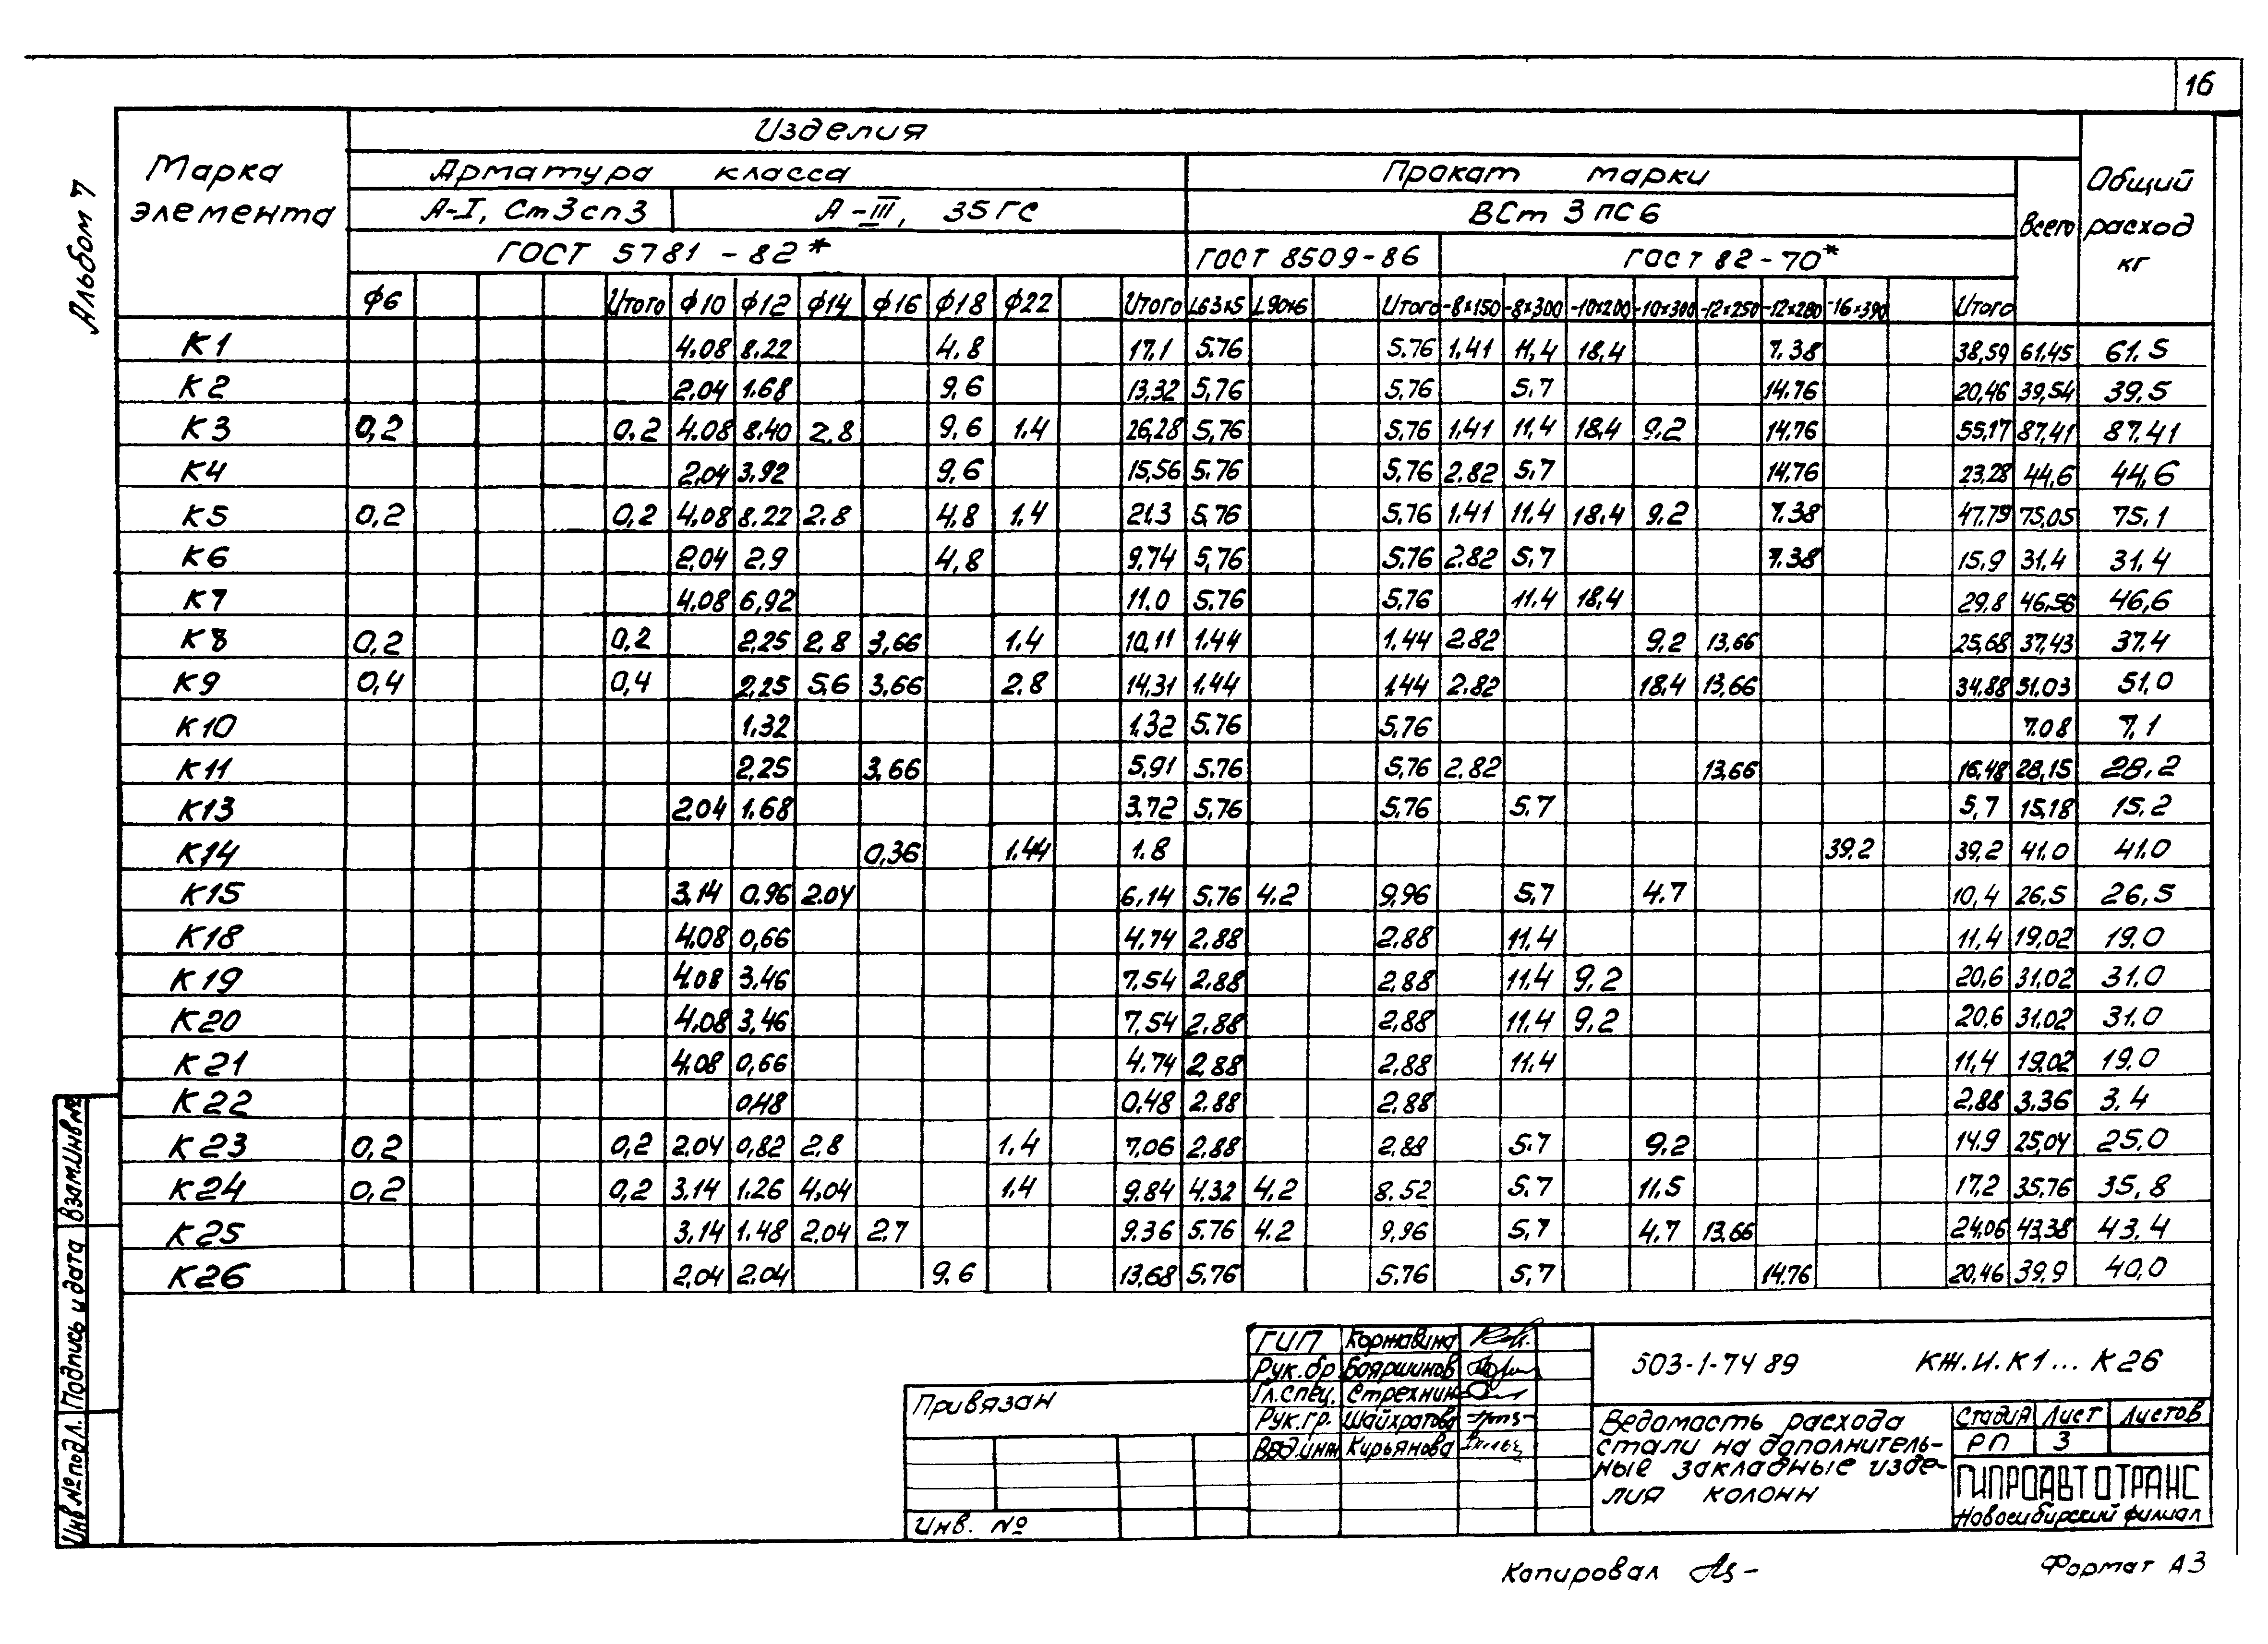 16
Альбом 7
Марка элемента
Изделия
Общий расход кг
Арматура класса
Прокат марки
Всего
А-I, Ст3сп3
А-III, 35ГС
ВСт 3 пс 6
ГОСТ 5781-82*
ГОСТ 8509-86
ГОСТ 82-70*
ф6 Итого ф10 ф12 ф14 ф16 ф18 ф22 Итого L63x5 L90x6 Итого -8x150 -8x300 -10x200 -10x300 -12x250 -12x280 -16x390 Итого
К1 4.08 8.22 4.8 17.1 5.76 5.76 1.41 11.4 18.4 7.38 38,59 61,45 61.5
К2 2.04 1.68 9.6 13,32 5,76 5.76 5.7 14.76 20,46 39,54 39,5
К3 0,2 0.2 4.08 8.40 2.8 9.6 1.4 26,28 5,76 5.76 1.41 11.4 18.4 9.2 14.76 55,17 87,41 87.41
К4 2,04 3,92 9.6 15,56 5.76 5.76 2.82 5.7 14.76 23,28 44,6 44,6
К5 0,2 0,2 4,08 8.22 2.8 4.8 1.4 21.3 5,76 5.76 1.41 11.4 18.4 9.2 7.38 47.79 75,05 75.1
К6 2,04 2.9 4,8 9.74 5,76 5.76 2.82 5.7 7.38 15.9 31.4 31.4
К7 4,08 6,92 11.0 5.76 5,76 11.4 18,4 29,8 46,56 46,6
К8 0,2 0,2 2,25 2.8 3,66 1.4 10,11 1.44 1.44 2.82 9,2 13,66 25,68 37,43 37.4
К9 0,4 0,4 2,25 5.6 3,66 2.8 14,31 1.44 1.44 2.82 18,4 13,66 34,88 51,03 51,0
К10 1,32 1.32 5.76 5.76 7.08 7,1
К11 2,25 3,66 5,91 5.76 5,76 2,82 13,66 16,48 28,15 28,2
К13 2,04 1.68 3.72 5,76 5.76 5.7 5,7 15,18 15,2
К14 0,36 1.44 1.8 39,2 39,2 41.0 41.0
К15 3,14 0,96 2.04 6,14 5.76 4.2 9.96 5,7 4.7 10,4 26,5 26,5
К18 4.08 0,66 4.74 2.88 2.88 11.4 11,4 19,02 19,0
К19 4.08 3.46 7,54 2.88 2,88 11.4 9,2 20,6 31,02 31.0
К20 4,08 3,46 7,54 2.88 2,88 11.4 9,2 20,6 31,02 31.0
К21 4,08 0,66 4.74 2,88 2,88 11.4 11,4 19,02 19,0
К22 0,48 0,48 2.88 2,88 2,88 3.36 3.4
К23 0,2 0,2 2.04 0,82 2.8 1.4 7,06 2,88 2.88 5.7 9,2 14.9 25,04 25.0
К24 0,2 0,2 3,14 1.26 4,04 1.4 9.84 4.32 4.2 8.52 5,7 11,5 17,2 35,76 35,8
К25 3,14 1.48 2.04 2.7 9.36 5.76 4.2 9,96 5,7 4,7 13,66 24,06 43,38 43,4
К26 2,04 2.04 9,6 13,68 5,76 5.76 5,7 14.76 20,46 39,9 40,0
Взам.Инв№
Подпись и дата
Инв № подл.
ГИП Коржавина
Рук.бр Бояршинов
Гл.спец. Стрехнин
Рук.гр. Шайхратова
Вед.инж Кирьянова
Привязан
Инв. №
503-1-74 89 КЖ.И.К1... К26
Ведомость расхода
стали на дополнитель-
ные закладные изде-
лия колонн
Стадия Лист Листов
РП 3
ГИПРОАВТОТРАНС
Новосибирский филиал
Копировал
Формат А3